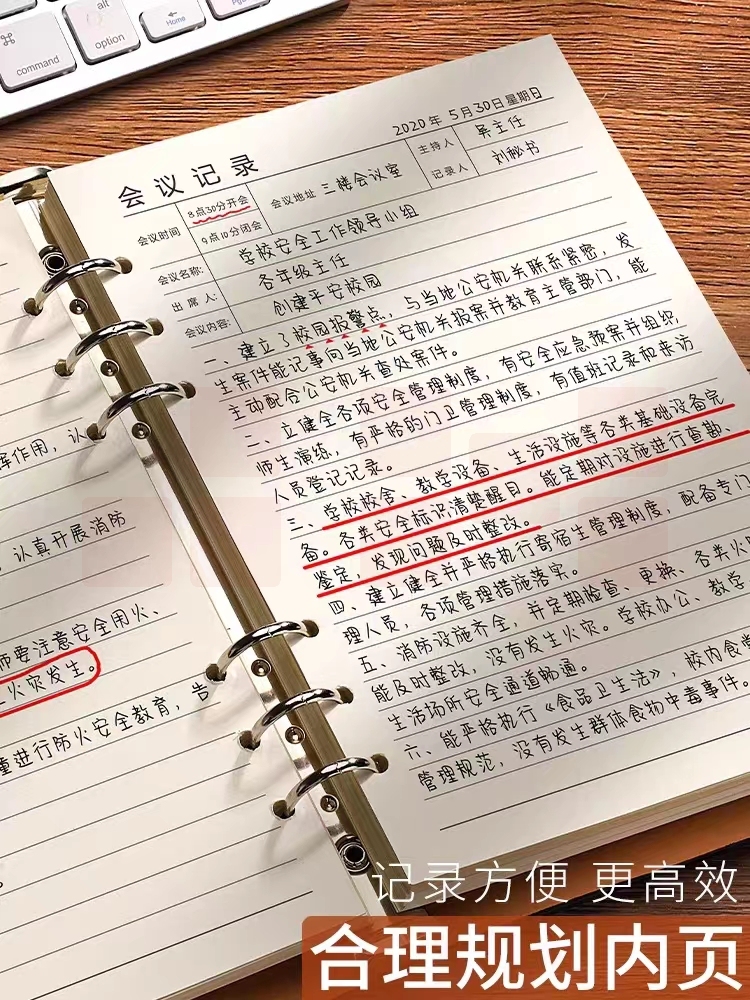 alt
Home
PgUp
⌘
command
option
2020年 5月30日星期日
会议记录
主持人 吴主任
记录人 刘秘书
会议时间 8点30分开会
9点10分闭会
会议地址 三楼会议室
会议名称: 学校安全工作领导小组
出席人: 各年级主任
会议内容: 创建平安校园
一、建立了校园报警点,与当地公安机关联系紧密,发
生案件能记事向当地公安机关报案并教育主管部门,能
主动配合公安机关查处案件。
二、立健全各项安全管理制度,有安全应急预案并组织
师生演练,有严格的门卫管理制度,有值班记录和来访
人员登记记录。
三、学校校舍、教学设备、生活设施等各类基础设备完
备。各类安全标识清楚醒目。能定期对设施进行查勘、
鉴定,发现问题及时整改。
四、建立健全并严格执行寄宿生管理制度,配备专门
理人员,各项管理措施落实。
五、消防设施齐全,并定期检查、更换、各类火
能及时整改,没有发生火灾。学校办公、教学
生活场所安全通道畅通。
六、能严格执行《食品卫生法》,校内食堂
管理规范,没有发生群体食物中毒事件。
挥作用,认
认真开展消防
师要注意安全用火、
火灾发生。
进行防火安全教育,告
记录方便 更高效
合理规划内页